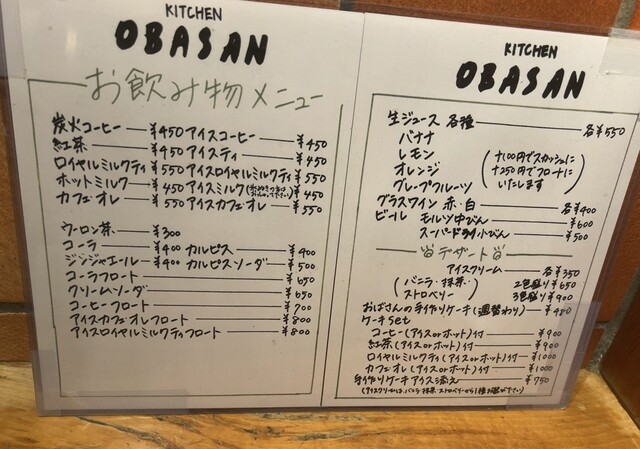 KITCHEN
OBASAN
お飲み物メニュー
炭火コーヒー ¥450 アイスコーヒー ¥450
紅茶 ¥450 アイスティ ¥450
ロイヤルミルクティ ¥550 アイスロイヤルミルクティ ¥550
ホットミルク ¥450 アイスミルク ¥450
カフェオレ ¥550 アイスカフェオレ ¥550
ウーロン茶 ¥300
コーラ ¥400 カルピス ¥400
ジンジャエール ¥400 カルピスソーダ ¥500
コーラフロート ¥650
クリームソーダ ¥650
コーヒーフロート ¥700
アイスカフェオレフロート ¥800
アイスロイヤルミルクティフロート ¥800
KITCHEN
OBASAN
生ジュース 各種 各¥550
バナナ
レモン
オレンジ
グレープフルーツ
(+100円でスカッシュに
+250円でフロートに
いたします)
グラスワイン 赤・白 各¥400
ビール モルツ中びん ¥600
スーパードライ小びん ¥500
デザート
アイスクリーム 各¥350
(バニラ・抹茶・ 2色盛り¥650
ストロベリー) 3色盛り¥900
おばさんの手作りケーキ(週替わり) ¥480
ケーキset
コーヒー(アイスorホット)付 ¥900
紅茶(アイスorホット)付 ¥900
ロイヤルミルクティ(アイスorホット)付 ¥1000
カフェオレ(アイスorホット)付 ¥1000
手作りケーキアイス添え ¥750
(アイスクリームは、バニラ・抹茶・ストロベリーから1種お選び下さい)